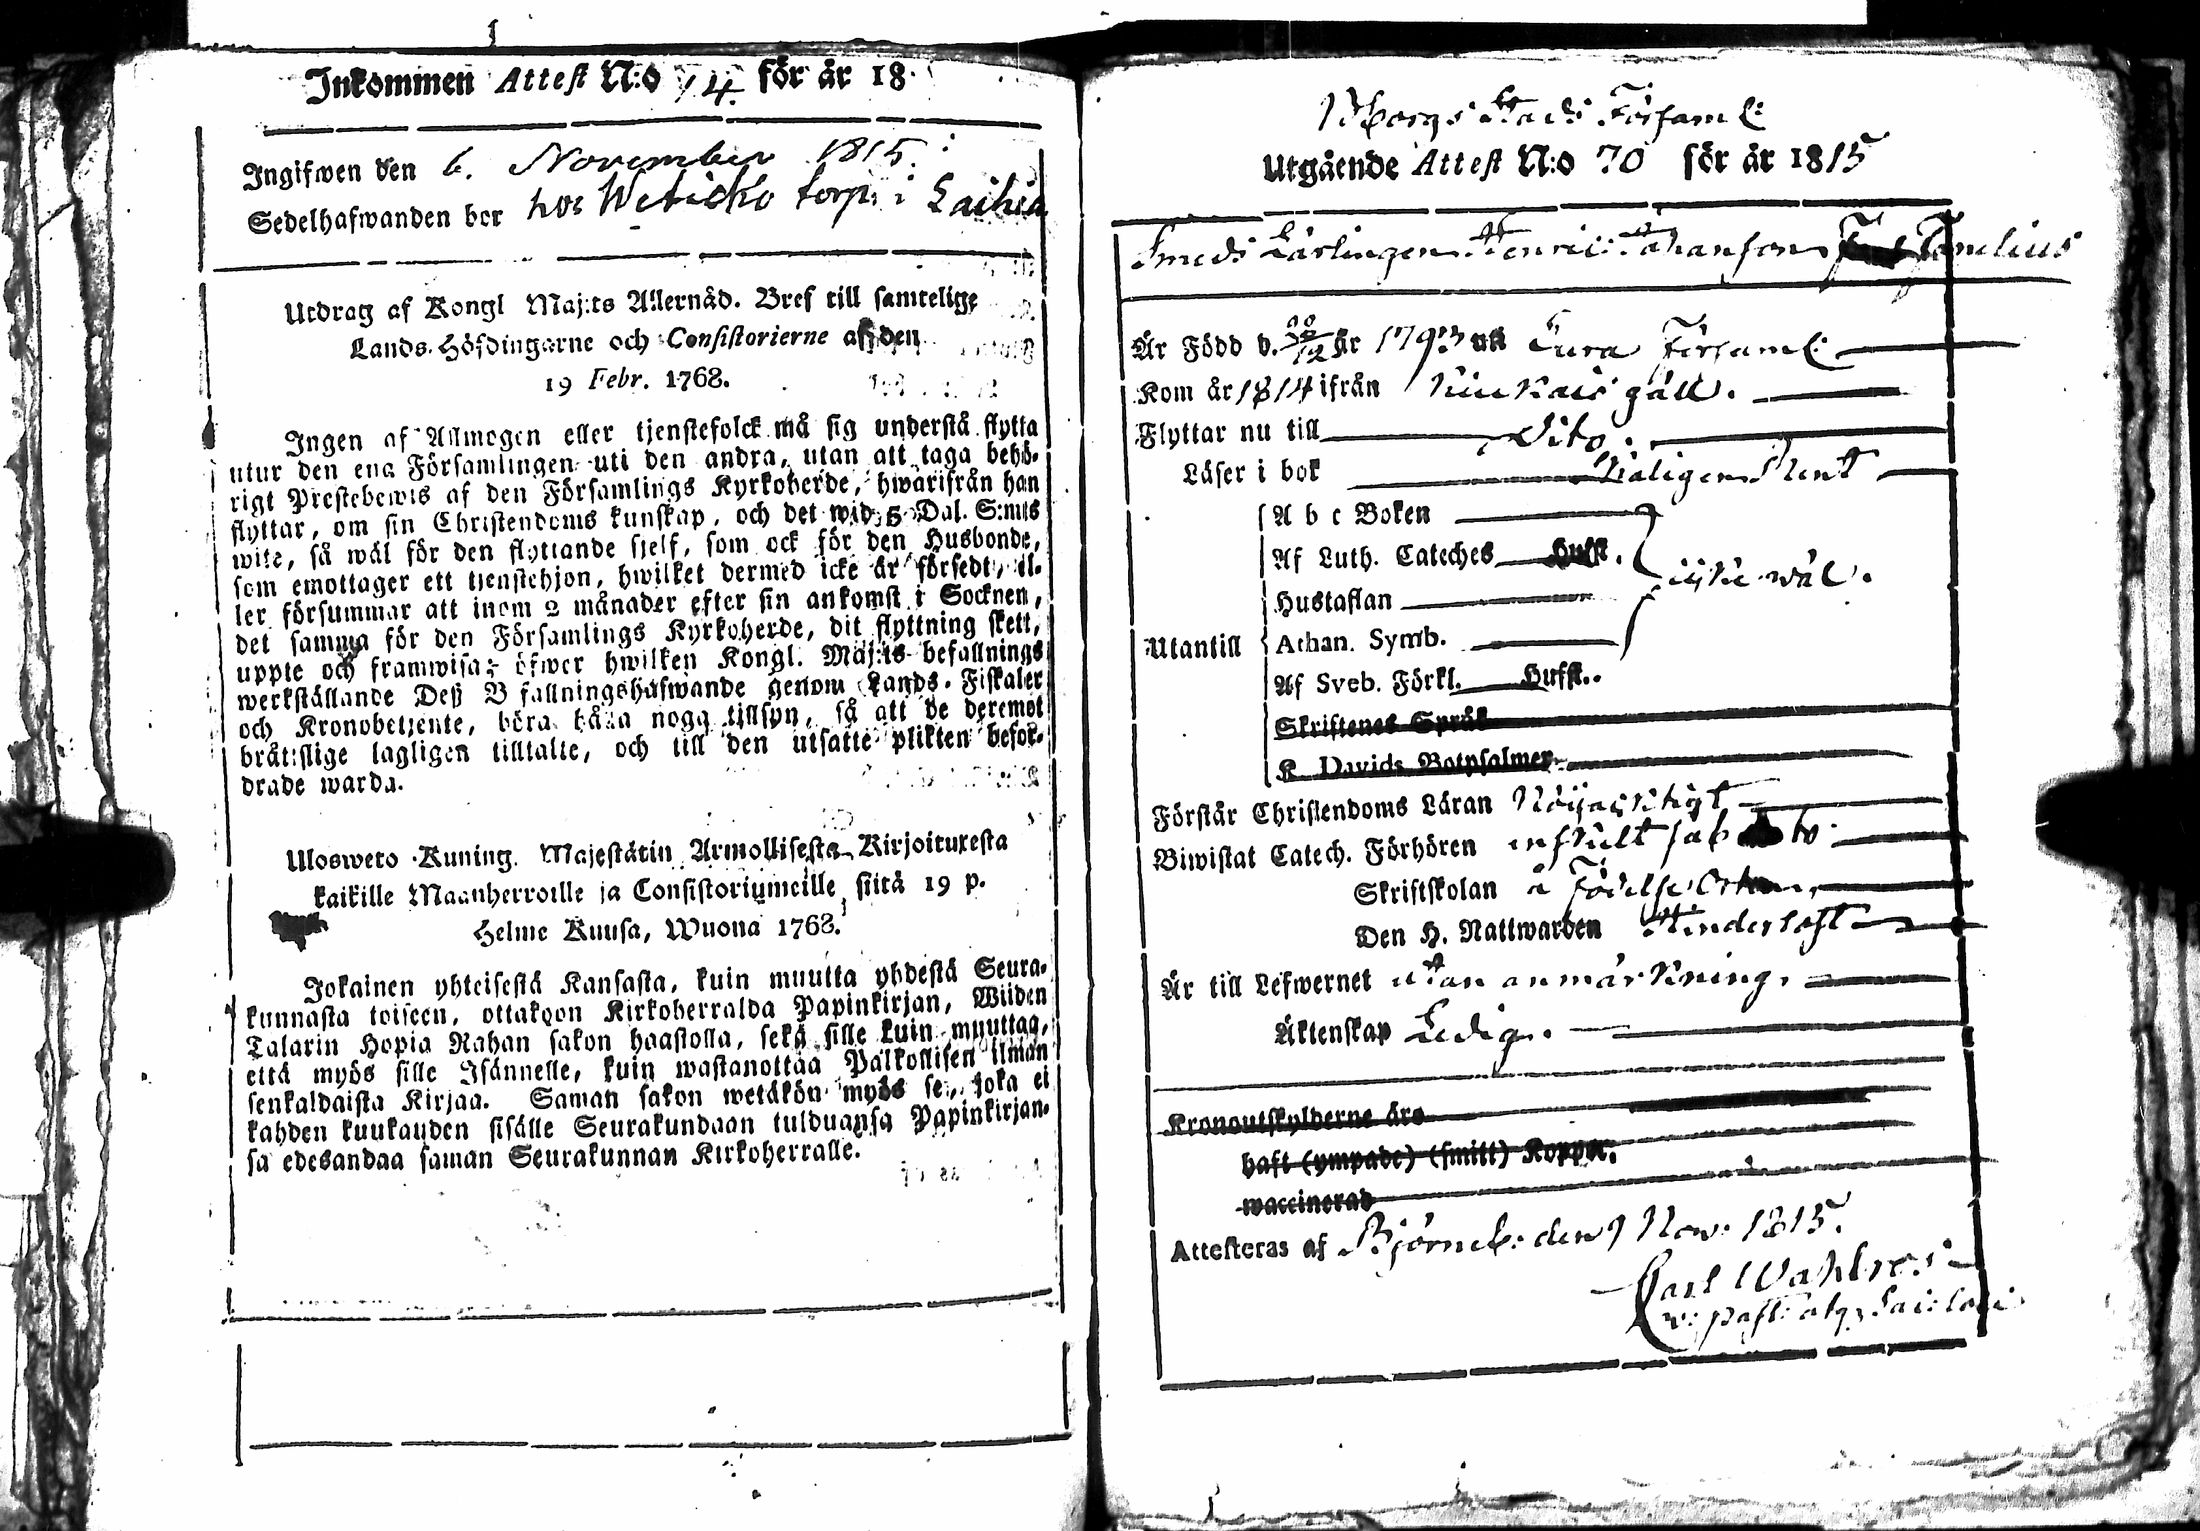 Inkommen Attest N:o 14. för år 18
Ingifwen den 6. November 1815.
Sedelhafwanden bor hos Weticko torp. i Laihia
Utdrag af Kongl Maj:ts Allernåd. Bref till samtelige
Lands-Höfdingarne och Consistorierne af den
19 Febr. 1768.
Ingen af Allmogen eller tjenstefolck må sig understå flytta
utur den ena Församlingen uti den andra, utan att taga behö-
rigt Prestebewis af den Församlings Kyrkoherde, hwarifrån han
flyttar, om sin Christendoms kunskap, och det wid 5 Dal. S:mts
wite, så wäl för den flyttande sjelf, som ock för den Husbonde,
som emottager ett tjenstehjon, hwilket dermed icke är försedt, el-
ler försummar att inom 2 månader efter sin ankomst i Socknen,
det samma för den Församlings Kyrkoherde, dit flyttning skett,
uppte och framwisa; öfwer hwilken Kongl. Maj:ts befallnings
werkställande Deß Befallningshafwande genom Lands-Fiskaler
och Kronobetjente, böra hålla noga tillsyn, så att de deremot
bråtslige lagligen tilltalte, och till den utsatte plikten befor-
drade warda.
Ulosweto Kuning. Majestätin Armollisesta Kirjoituxesta
kaikille Maanherroille ja Consistoriumeille, siitä 19 p.
Helme Kuusa, Wuona 1768.
Jokainen yhteisestä Kansasta, kuin muutta yhdestä Seura-
kunnasta toiseen, ottakoon Kirkoherralda Papinkirjan, Wiiden
Talarin Hopia Rahan sakon haastolla, sekä sille kuin muuttaa,
että myös sille Isännelle, kuin wastanottaa Palkollisen ilman
senkaldaista Kirjaa. Saman sakon wetäkön myös se, joka ei
kahden kuukauden sisälle Seurakundaan tulduansa Papinkirjan-
sa edesandaa saman Seurakunnan Kirkoherralle.
Bborgs Stads Församl:
Utgående Attest N:o 70 för år 1815
Smeds Lärlingen Henric Johansson Tamelius
Är Född d. 12 år 1793 uti Eura Församl:
Kom år 1814 ifrån Kiukais gäll.
Flyttar nu till Dito.
Läser i bok Kåligen Rent
A b c Boken
Af Luth. Cateches Hufst.
Hustaflan
Utantill Athan. Symb.
Af Sveb. Förkl. Hufst.
Skriftenes Språk
K. Davids Botpsalmer
Förstår Christendoms Läran Nöijacktigt
Biwistat Catech. Förhören
Skriftskolan å Födelse Orten
Den H. Nattwarden Hindersast
Är till Lefwernet utan anmärkning.
Äktenskap Ledig.
Kronoutskylderne äro
haft (ympade) (smitt) Koppor.
waccinerad
Attesteras af Björneb: den 1 Nov: 1815.
Carl Wahlros